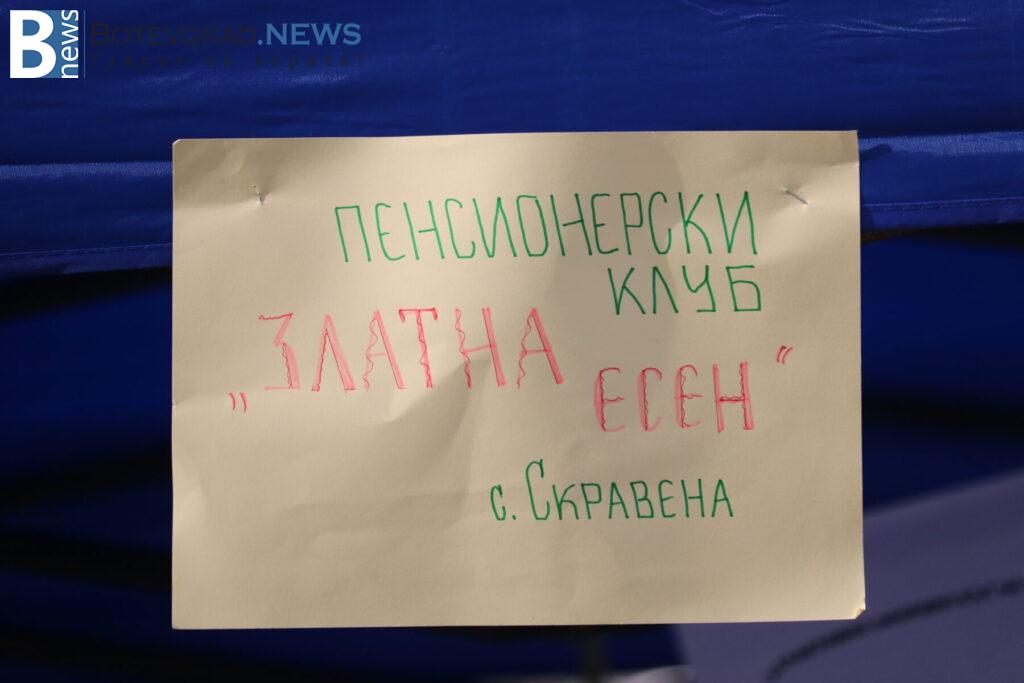 B news
BOTEVGRAD.NEWS
ПЕНСИОНЕРСКИ
КЛУБ
„ЗЛАТНА
ЕСЕН"
с. СКРАВЕНА